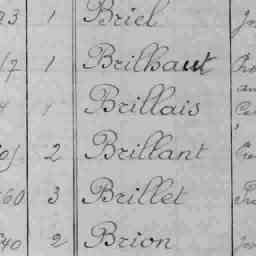 1 Briel
1 Brilhaut
1 Brillais
2 Brillant
60 3 Brillet
40 2 Brion